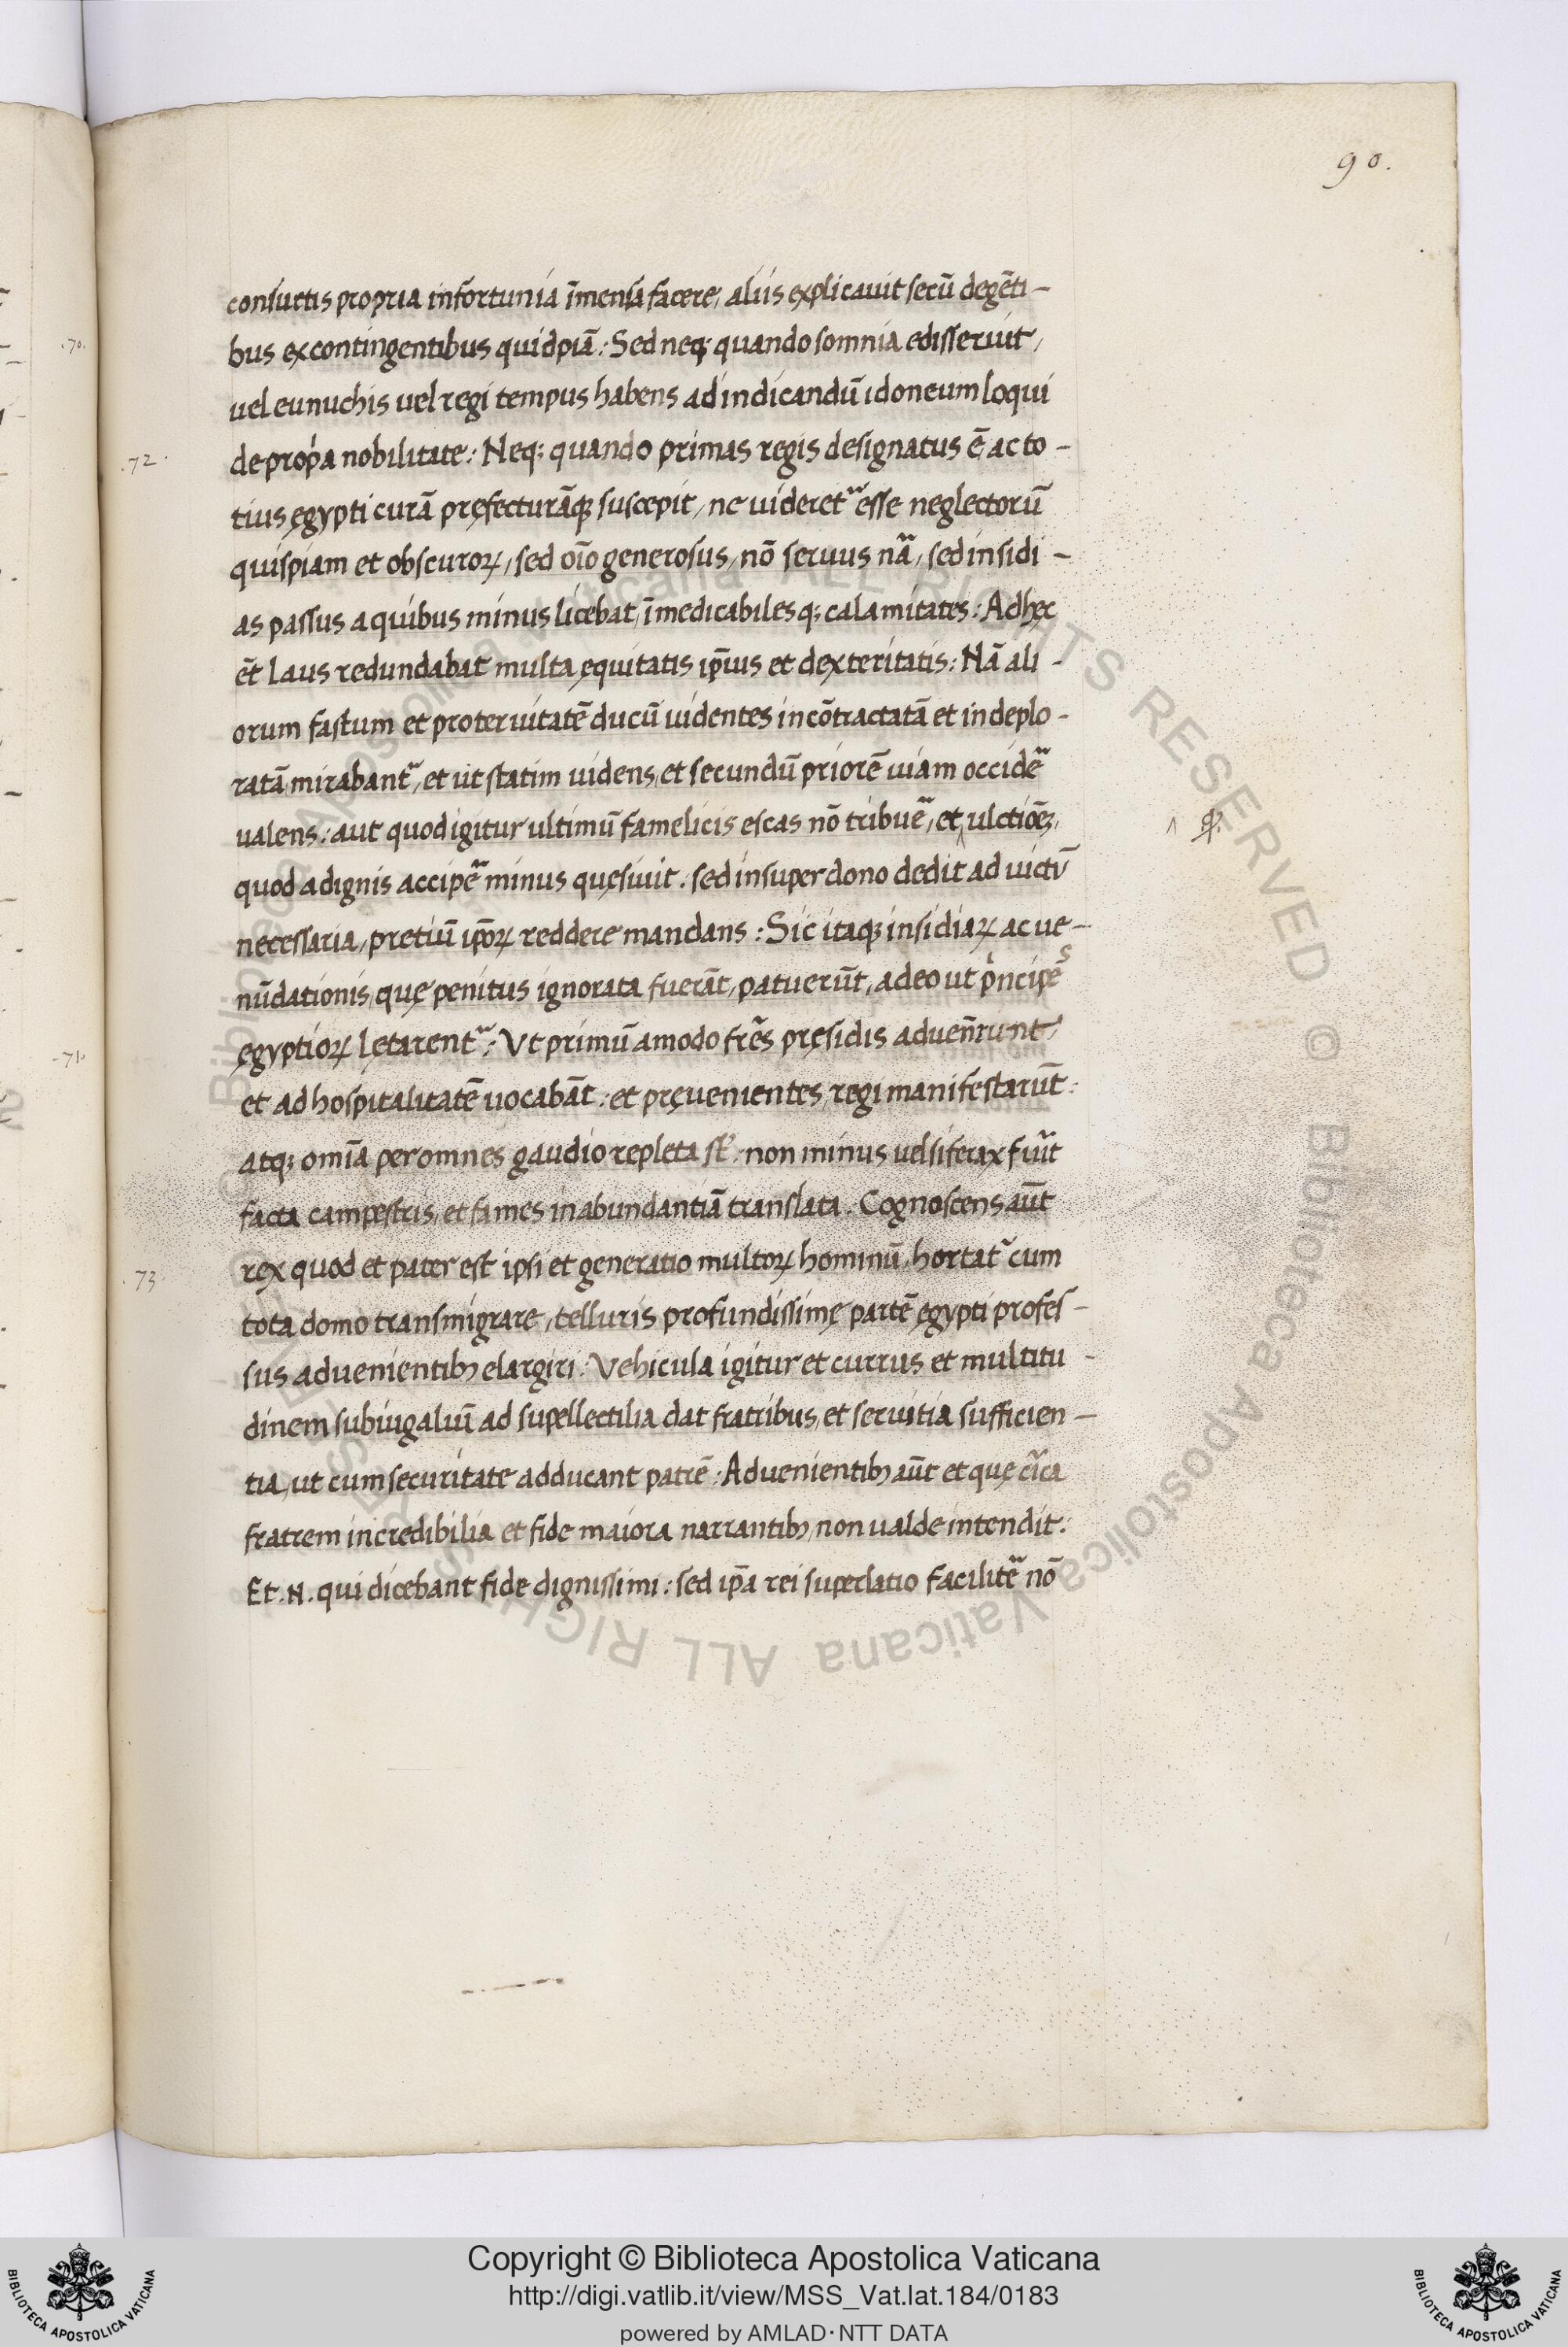 90.
consuetis propria infortunia īmensa facere, aliis explicauit secū degēti-
.70.
bus ex contingentibus quidpiā: Sed neq; quando somnia edisseruit,
uel eunuchis uel regi tempus habens ad indicandū idoneum loqui
.72.
de prop̱a nobilitate: Neq; quando primas regis designatus ē ac to-
tius ęgypti curā pręfecturāq; suscepit, ne uideret᷑ esse neglectorū
quispiam et obscuroꝝ, sed oīo generosus, nō seruus nā, sed insidi-
as passus a quibus minus licebat, īmedicabilesq; calamitates: Ad hęc
ēt laus redundabat multa ęquitatis ip̄ius et dexteritatis: Nā ali-
orum fastum et proteruitatē ducū uidentes incōtractatā et indeplo-
ratā mirabant᷑, et ut statim uidens, et secundū priorē uiam occidē
ualens: aut quod igitur ultimū famelicis escas nō tribuē, et ulctiōēꝫ,
quod a dignis accipē minus quęsiuit. sed insuper dono dedit ad uictū
necessaria, pretiū ip̄oꝝ reddere mandans: Sic itaq; insidiaꝝ ac ue-
nūdationis, quę penitus ignorata fuerāt, patuerūt, adeo ut p̍ncipēs
.71.
ęgyptioꝝ lętarent᷑: Vt primū amodo fr̄es pręsidis aduen̄runt
et ad hospitalitatē uocabāt: et pręuenientes, regi manifestarūt:
atq; omīa per omnes gaudio repleta st̄: non minus uel si ferax fuīt
facta campestris, et fames in abundantiā translata. Cognoscens aūt
.73.
rex quod et pater est ipsi et generatio multoꝝ hominū, hortat᷑ cum
tota domo transmigrare, telluris profundissimę partē ęgypti profes-
sus aduenientibꝫ elargiri: Vehicula igitur et currus et multitu-
dinem subiugaliū ad supellectilia dat fratribus, et seruitia sufficien-
tia, ut cum securitate adducant patrē: Aduenientibꝫ aūt et quę cīca
fratrem incredibilia et fide maiora narrantibꝫ, non ualde intendit:
Et .N. qui dicebant fide dignissimi: sed ip̄a rei superlatio facilitē nō
Copyright © Biblioteca Apostolica Vaticana
http://digi.vatlib.it/view/MSS_Vat.lat.184/0183
powered by AMLAD·NTT DATA
BIBLIOTECA APOSTOLICA VATICANA
BIBLIOTECA APOSTOLICA VATICANA